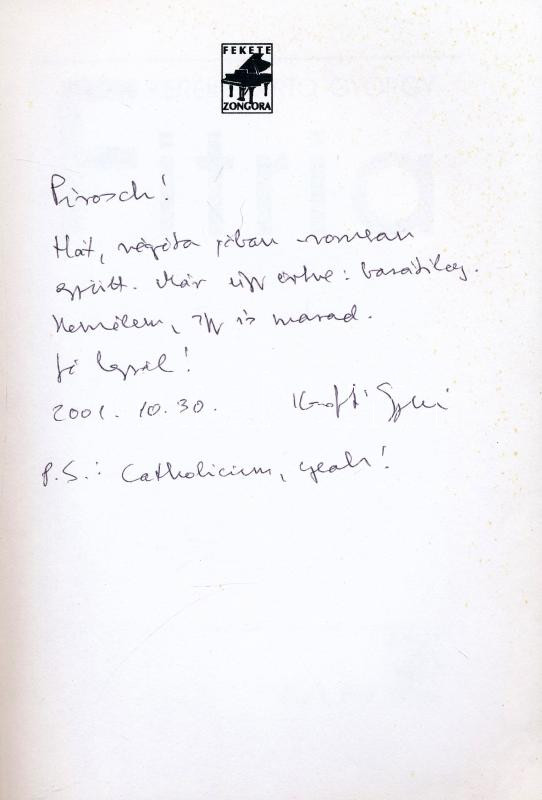 FEKETE
ZONGORA
Pirosch!
Hát, régóta jóban vommean
együtt. Már úgy értve: barátilag.
Remélem, így is marad.
Jó legyél!
2001. 10. 30.
P.S.: Catholicism, yeah!